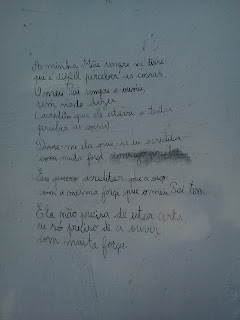 A minha Mãe sempre me disse
que é difícil perceber as coisas.
O meu Pai sempre a ouviu,
sem nada dizer
(acredito que ele estava a tentar
perceber as coisas)
Disse-me ela que, se eu acreditar
com muita força,
Eu quero acreditar que a oiço
com a mesma força que o meu Pai tem.
Ela não precisa de estar certa,
eu só preciso de a ouvir
com muita força.